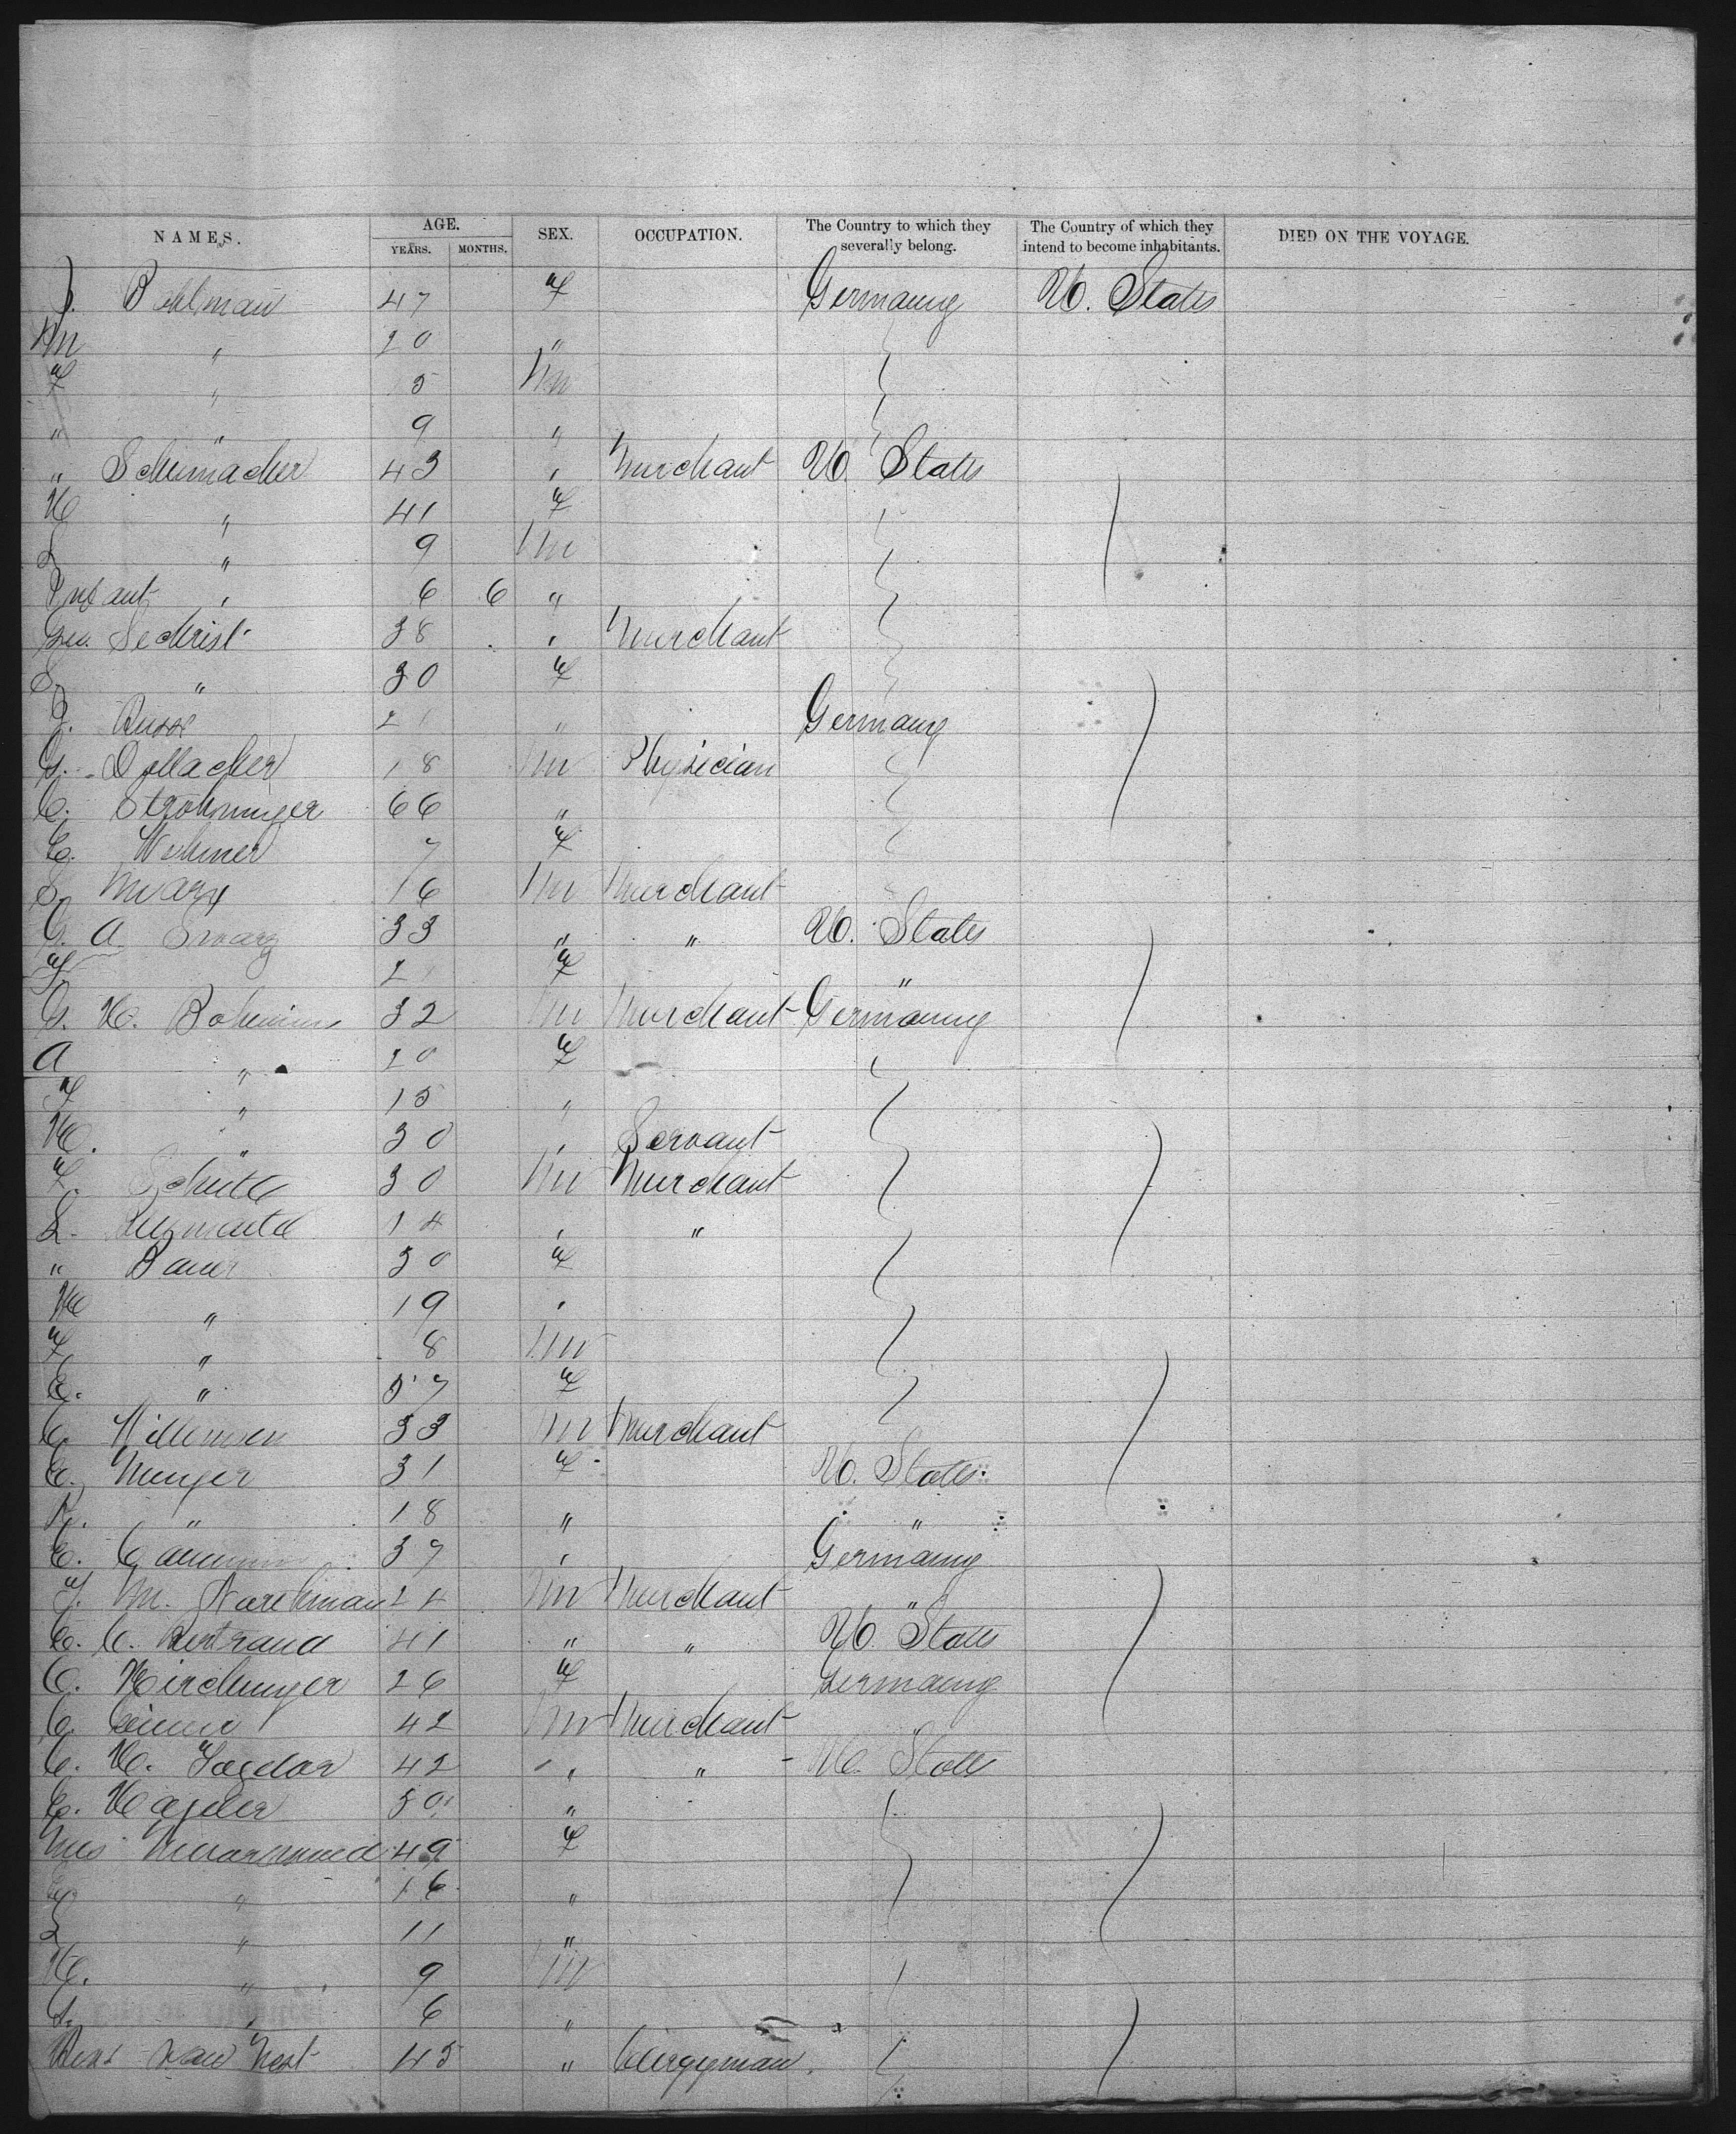 NAMES. AGE. SEX. OCCUPATION. The Country to which they severally belong. The Country of which they intend to become inhabitants. DIED ON THE VOYAGE.
YEARS. MONTHS.
J. Bohlman 47 F Germany U. States
M " 20 "
F " 15 M
" " 9 "
" Schumacher 43 " Merchant U. States
H " 41 F
L " 9 M
Infant " 6 6 "
Geo. Sechrist 38 " Merchant
S. " 30 F
J. Busse 21 " Germany
G. Dollacher 18 M Physician
C. Strohminger 66 "
E. Wehmer 7 F
S. Marx 16 M Merchant
G. A Swarz 33 " " U. States
F 2 F "
G. H. Bohemius 32 M Merchant Germany
A " 20 F
F " 15 "
H. " 30 " Servant
F. Schutte 30 M Merchant
L. 14 " "
" Bauer 30 F
H " 19 "
F " 8 M
E. " 57 F
C. Willemsen 33 M Merchant
E. Meyer 31 F U. States
R. " 18 " "
E. 37 " Germany
F. M. 24 M Merchant "
E. C. Bertrand 41 " " U. States
C. Kirchmeyer 26 F Germany
C. 42 M Merchant "
C. H. 42 " " U. States
E. 50 "
Mrs 49 F
" 16 "
L " 11 "
H. " 9 M
G. " 6 "
Van Nest 45 " Clergyman